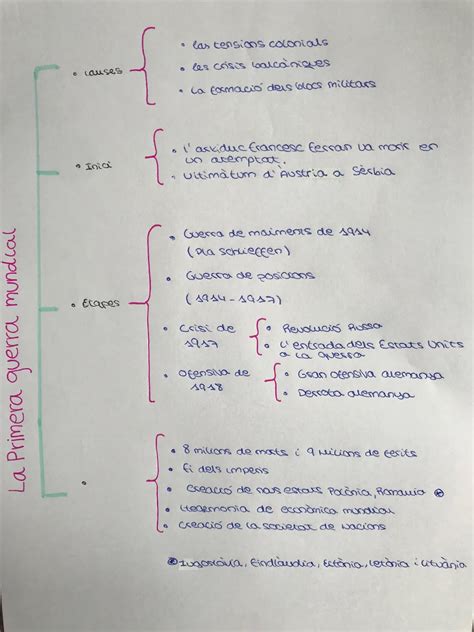 La Primera guerra mundial
• causes
• Las tensions colonials
• les crisis balcàniques
• La formació dels blocs militars
• Inici
• l'arxiduc Francesc Ferran va morir en
un atemptat.
• Ultimàtum d'Àustria a Sèrbia
• Etapes
• Guerra de moviments de 1914
(Pla Schlieffen)
• Guerra de posicions
(1914-1917)
• Crisi de
1917
• Revolució Russa
• L'entrada dels Estats Units
a la guerra
• Ofensiva de
1918
• Gran ofensiva alemanya
• Derrota alemanya
•
• 8 milions de morts i 9 milions de ferits
• Fi dels imperis
• Creació de nous estats Polònia, Romania ⊛
• Hegemonia de econòmica mundial
• Creació de la societat de Nacions
⊛ Iugoslàvia, Finlàndia, Estònia, Letònia i Lituània